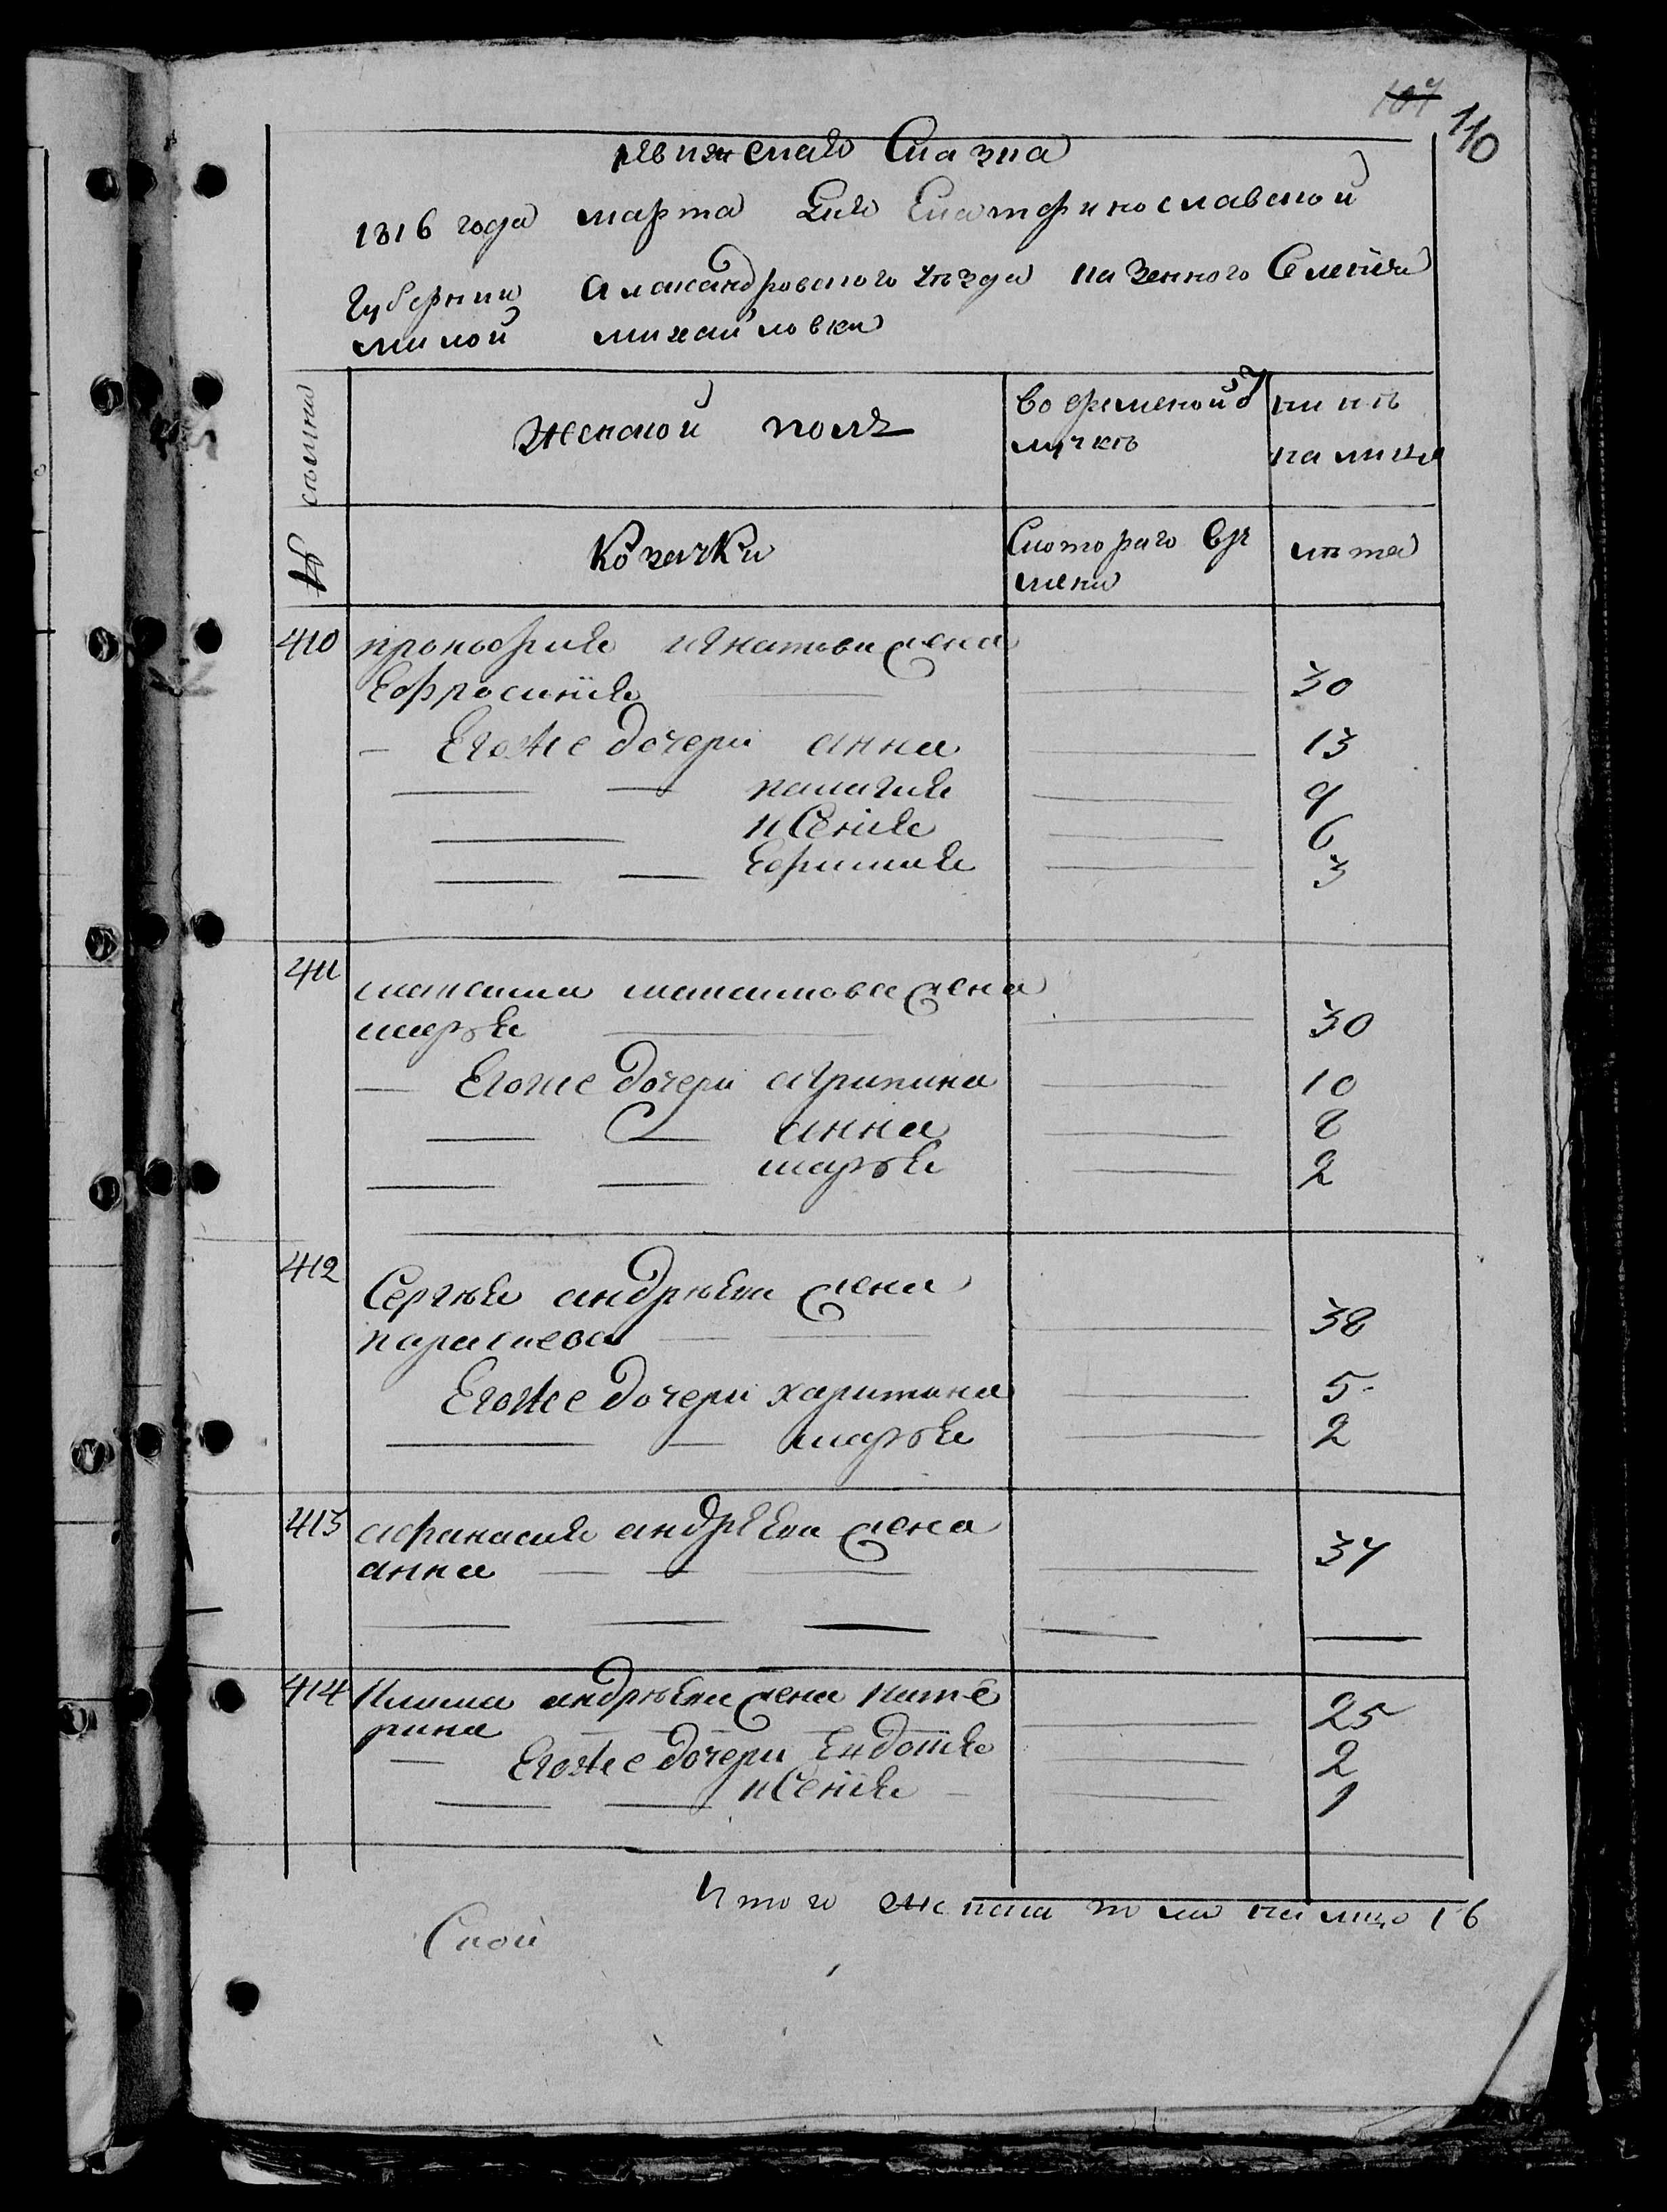 107
110
ревижская Сказка
1816 года марта Дня Екатеринославской
Губернии Александровского уезда казенного Селения
милой михайловки
№ семьи
женской полъ
во временой от
лучкѣ
нинѣ
на лицо
Козачки
Скотораго вре
мени
лѣта
410 прокофия игнатова жена
Ефросиния 30
Егоже дочери анна 13
палагия 9
ксения 6
Ефимия 3
411 максима максимова жена
марья 30
Егоже дочери агрипина 10
анна 8
марья 2
412 Сергѣя андрѣева жена
парасиева 38
Егоже дочери харитина 5
марья 2
413 афанасия андрѣева жена
анна 37
414 Клима андрѣева жена кате
рина 25
Егоже дочери Евдотия 2
ксения 1
Итого женска пола на лицо 16
Ской